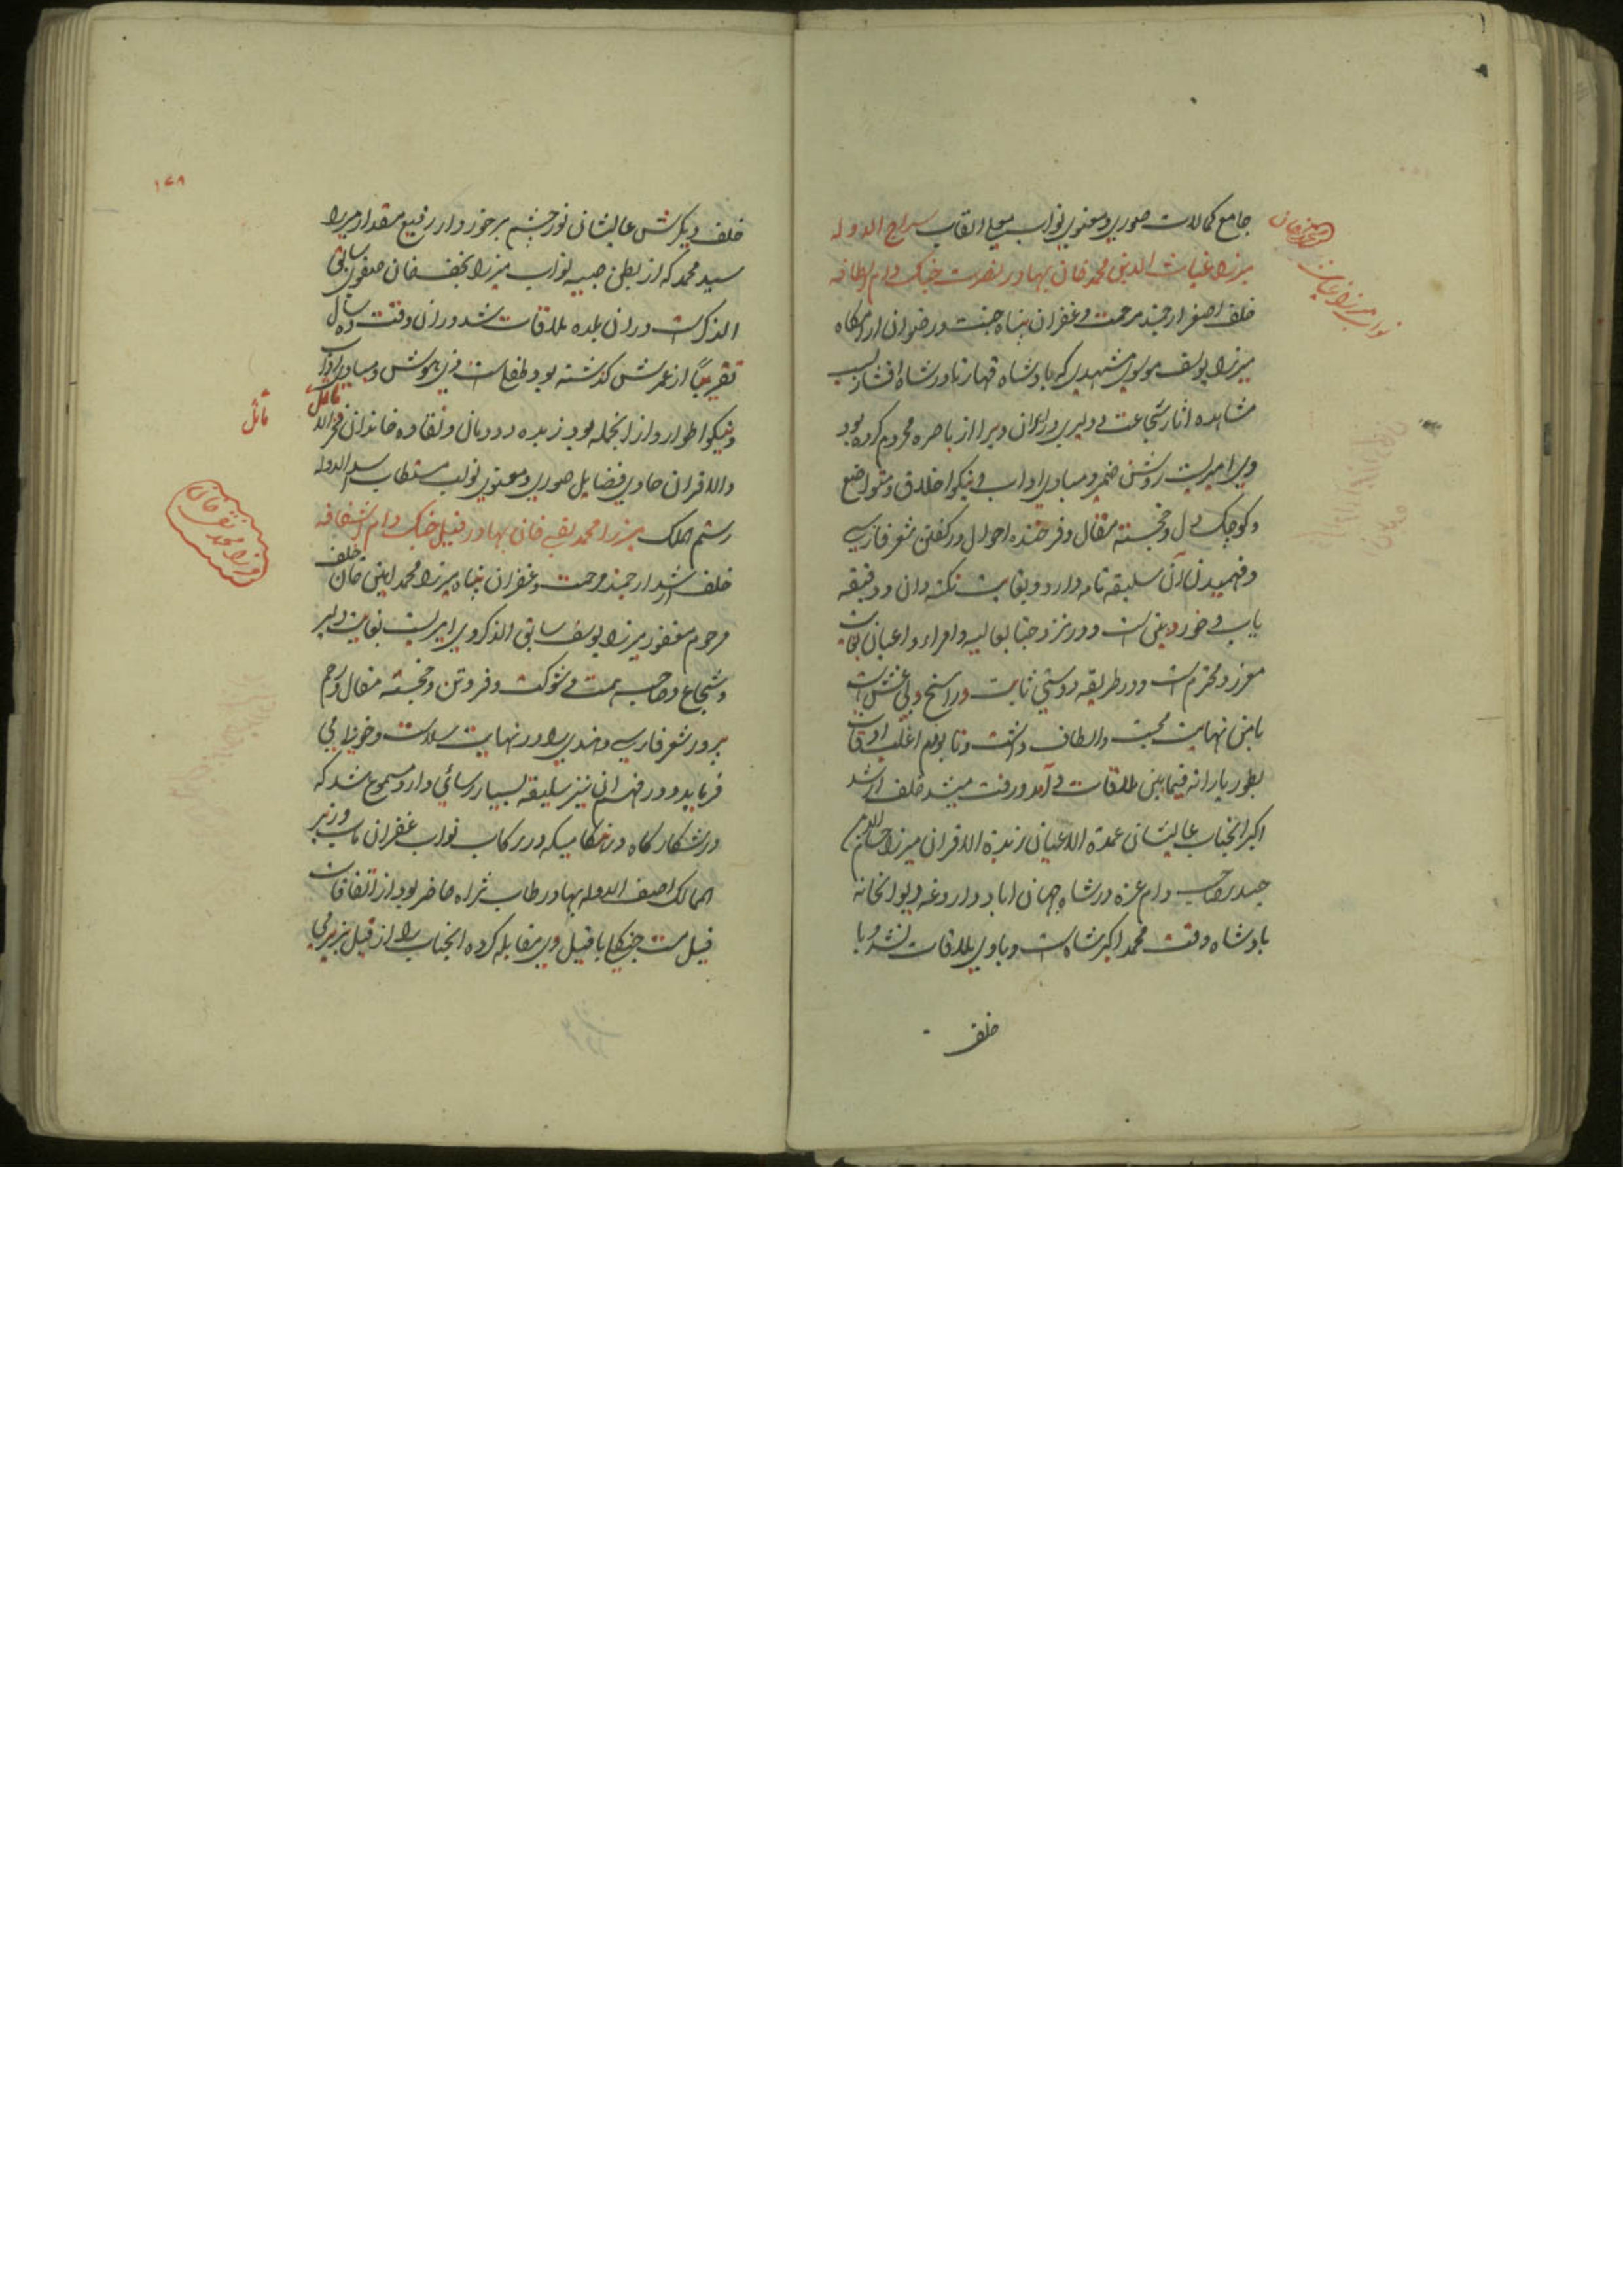 جامع کمالات صوری و معنوی نواب معلی القاب سراج الدوله
میرزا غیاث الدین محمد خان بهادر نصرت جنک دام الطافه
خلف اصغر ارجمند مرحمت و غفران پناه جنت و رضوان ارامکاه
میرزا یوسف موسوی مشهدی که پادشاه قهار نادر شاه افشار بسبب
مشاهده اثار شجاعت و دلیری در ایران ویرا از باصره محروم کرده بود
وی امیریست روشن ضمیر و مبادی اداب و نیکو اخلاق و متواضع
و کوچک دل و خجسته مقال و فرخنده احوال در کفتن شعر فارسی
و فهمیدن آن سلیقه تامه دارد و بغایت نکته دان و دقیقه
یاب و خورده بین است و در نزد جنابعالیه و امراء و اعیان بغایت
معزز و محترم است و در طریقه دوستی ثابت و راسخ و بی غش است
بامن نهایت محبت و الطاف داشت و تا بودم اغلب اوقات
بطور یارانه فیمابین ملاقات و آمد و رفت میشد خلف ارشد
اکبر انجناب عالیشان عمدة الاعیان زبدة الاقران میرزا حسام الدین
حیدر صاحب دام عزه در شاه جهان اباد داروغه دیوانخانه
پادشاه وقت محمد اکبر شاه است و باوی ملاقات نشد و با
خلف
نواب میرزا غیاث
الدین محمد خان
۱۷۸
خلف دیکرش عالیشان نور چشم برخوردار رفیع مقدار میرزا
سید محمد که از بطن صبیه نواب میرزا نجفخان صفوی سابق
الذکر است در ان بلده ملاقات شد در ان وقت ده سال
تقریباً از عمرش کذشته بود طفلی است ذی هوش و مبادی اداب
و نیکو اطوار و از انجمله بود زبده دودمان و نقاوه خاندان فخر الاماثل
والاقران حاوی فضایل صوری و معنوی نواب مستطاب اسد الدوله
رستم الملک میرزا محمد تقی خان بهادر فیل جنک دام اشفاقه
خلف ارشد ارجمند مرحمت و غفران پناه میرزا محمد امین خان خلف
مرحوم مغفور میرزا یوسف سابق الذکر وی امیریست بغایت دلیر
و شجاع و صاحب همت و شوکت و فروتن و خجسته مقال و رحم
پرور شعر فارسی و هندی را در نهایت سلاست و خوش ادایی
فرماید و در فهم ان نیز سلیقه بسیار رسائی دارد مسموع شد که
در شکار کاه در هنکامیکه در رکاب نواب غفران ماب وزیر
الممالک اصف الدوله بهادر طاب ثراه حاضر بود از اتفاقات
فیل مست جنکلی با فیل وی مقابله کرده انجناب را از فیل بزیر می
مائل
میرزا محمد تقی خان